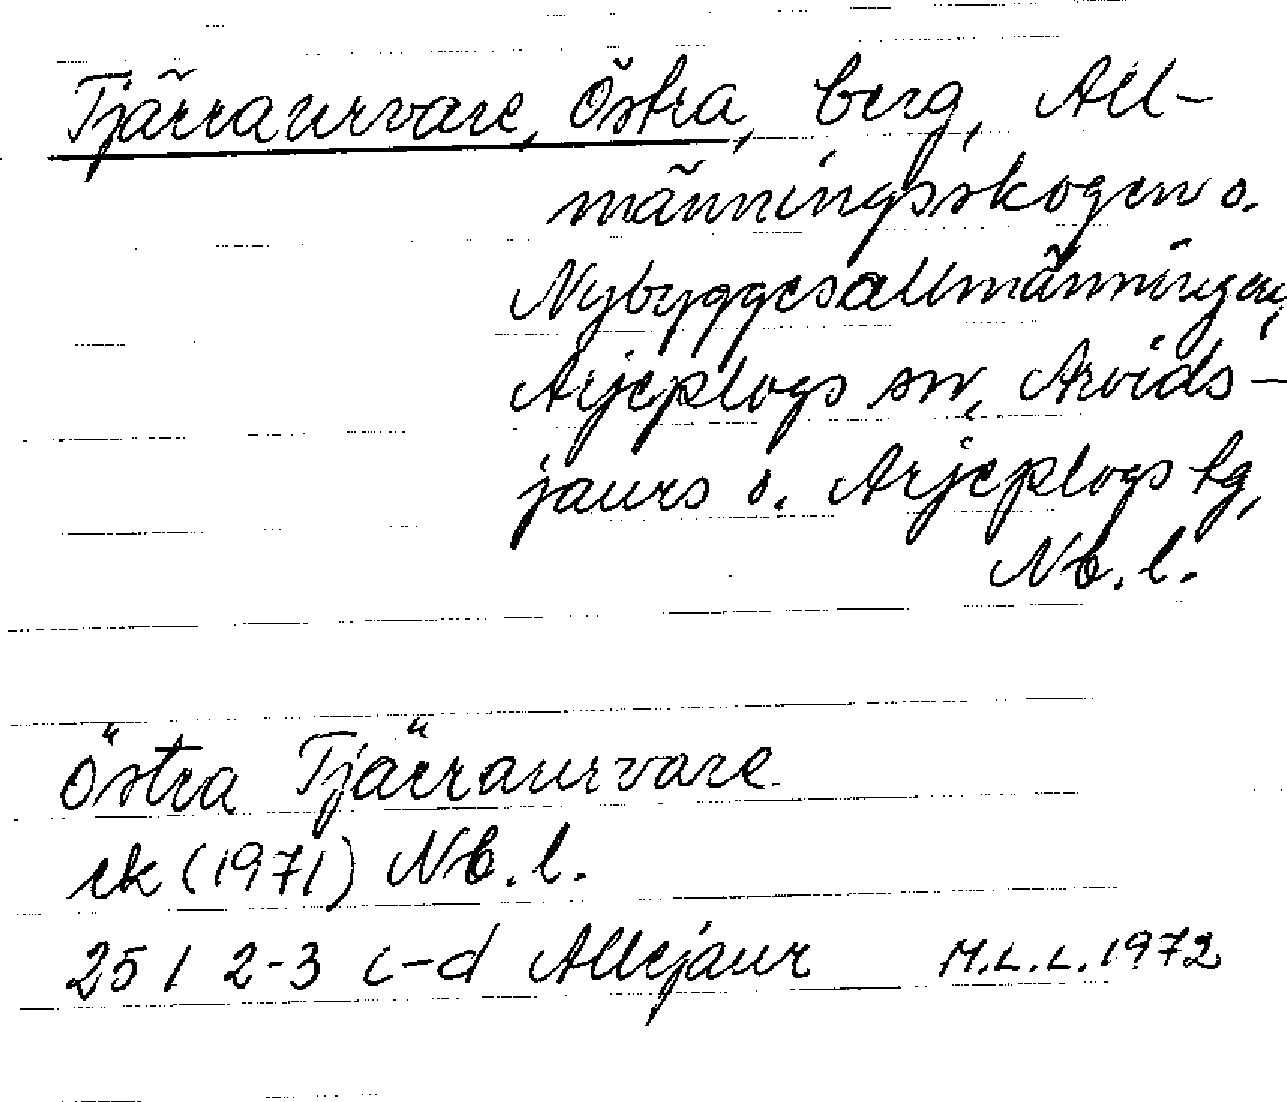 Tjärraurvare, Östra, berg, All-
männingsskogen o.
Nybyggesallmänningen,
Arjeplogs sn, Arvids-
jaurs o. Arjeplogs tg,
Nb. l.
Östra Tjärraurvare
ek (1971) Nb. l.
25 I 2-3 c-d Allejaur M.L.L. 1972